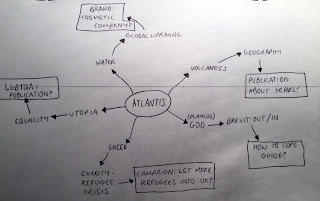 BRAND:
COSMETIC
COMPANY?
GLOBAL WARMING
WATER
VOLCANOES
GEOGRAPHY
PUBLICATION
ABOUT TRAVEL?
LGBTQA+
PUBLICATION?
EQUALITY
UTOPIA
ATLANTIS
(PLAYING)
GOD
BREXIT: OUT/IN
HOW TO COPE
GUIDE?
GREED
CHARITY-
REFUGEE
CRISIS
CAMPAIGN: LET MORE
REFUGEES INTO UK?